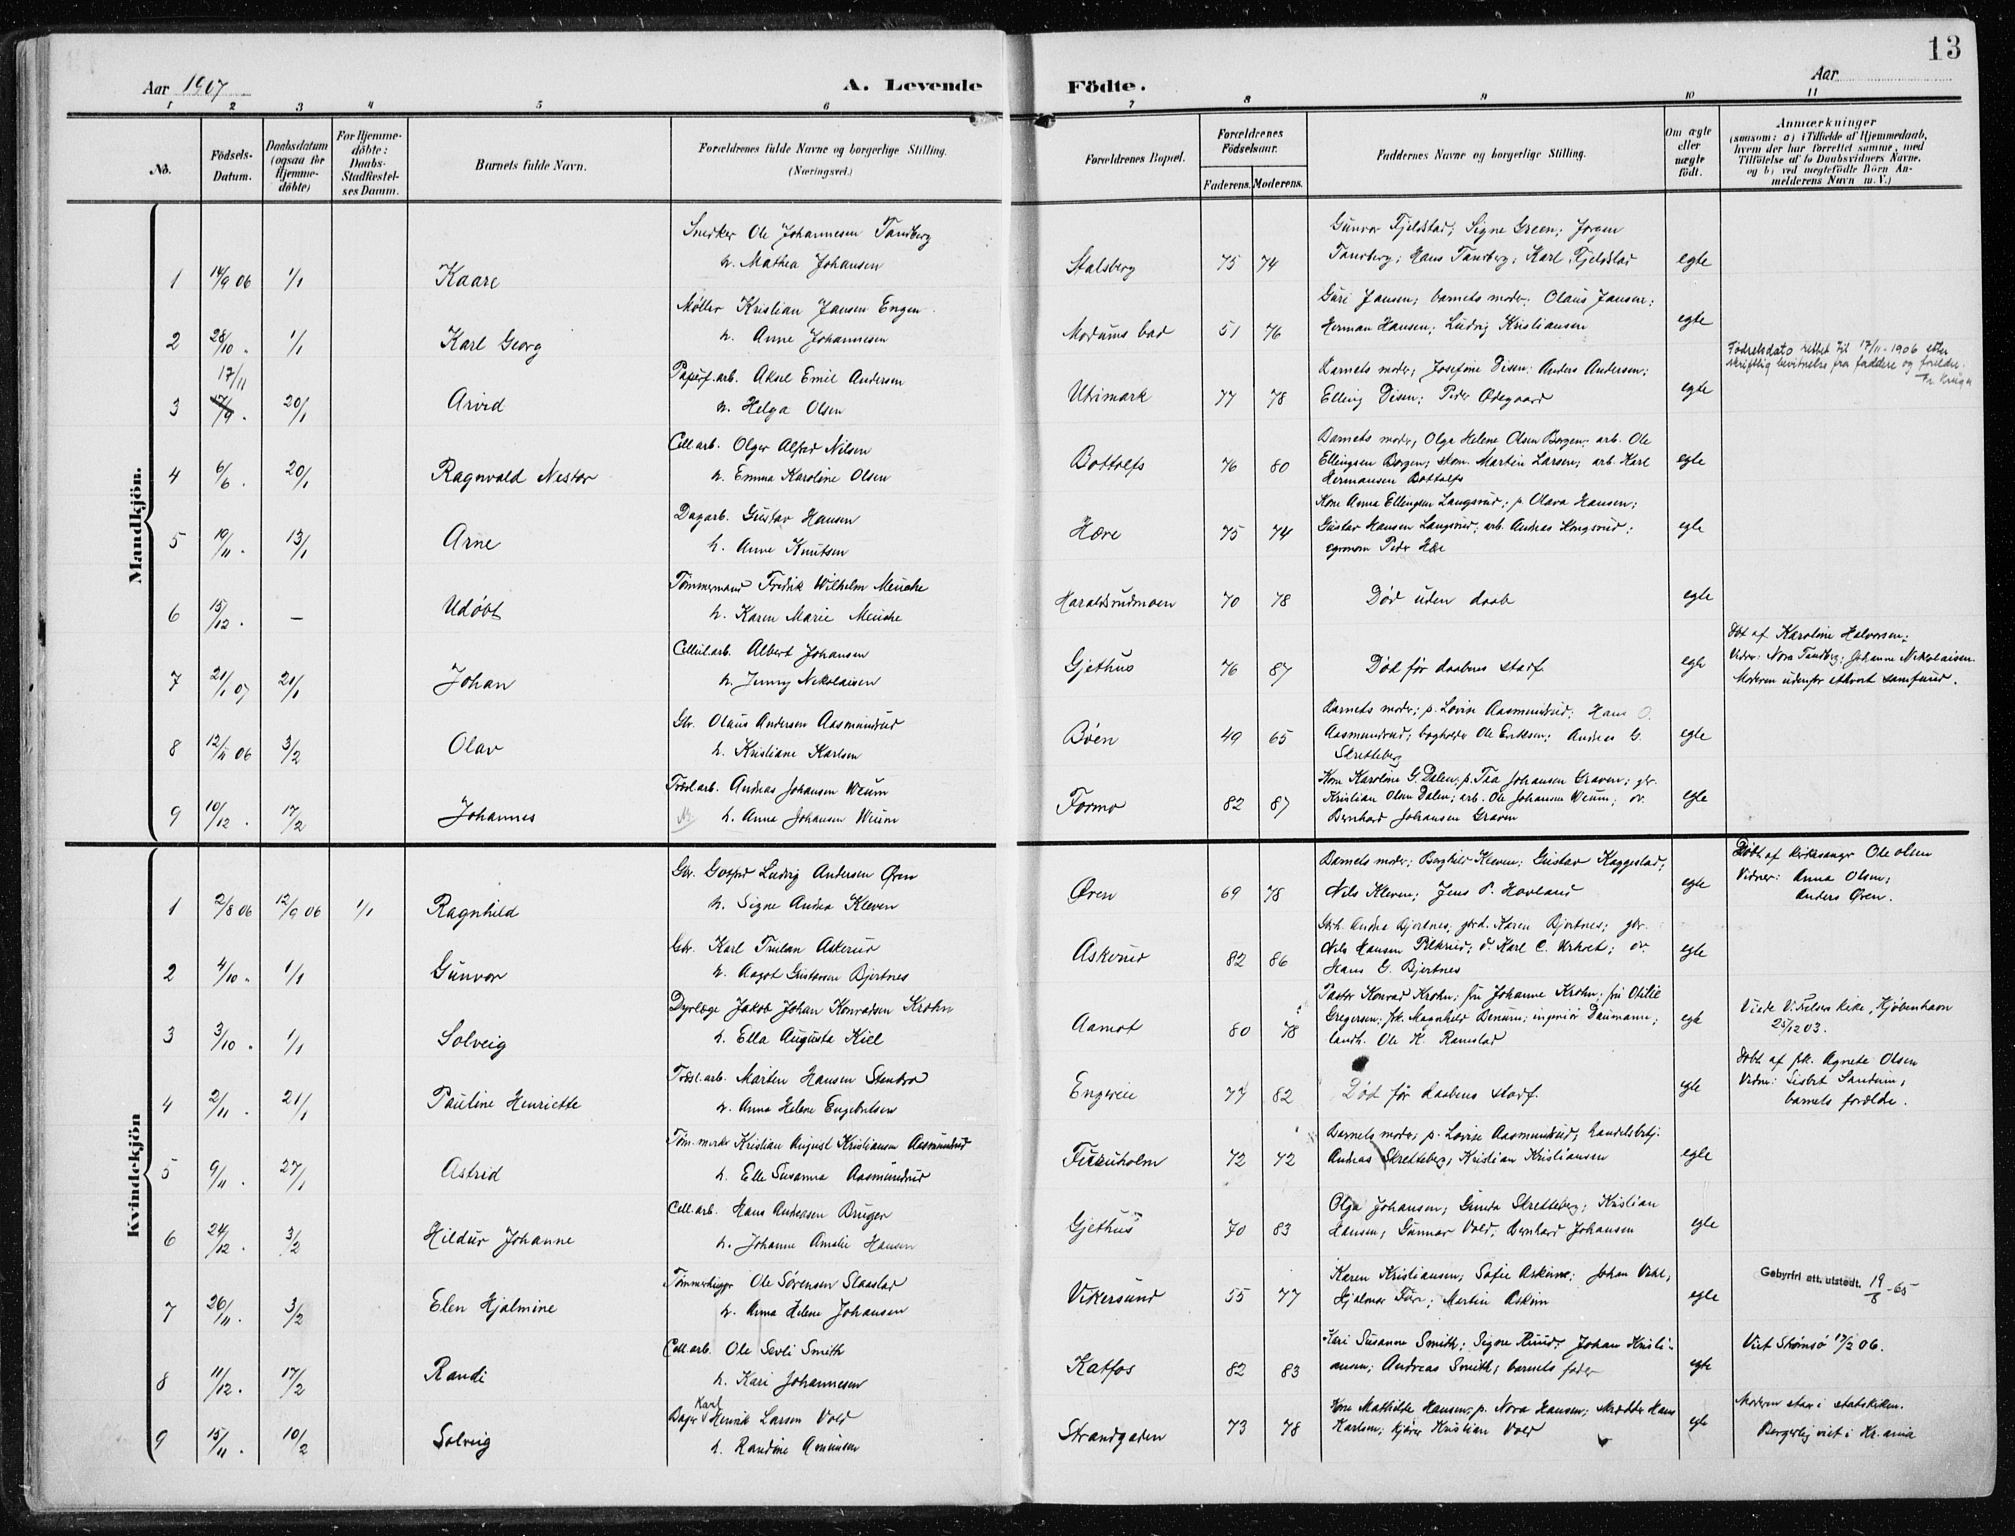 13
Aar 1907
A. Levende Födte.
Aar
1 2 3 4 5 6 7 8 9 10 11
No.
Födsels-Datum.
Daabsdatum (ogsaa for Hjemme-döbte)
For Hjemme-döbte: Daabs-Stadfæstel-ses Datum.
Barnets fulde Navn.
Forældrenes fulde Navne og borgerlige Stilling. (Næringsvei.)
Forældrenes Bopæl.
Forældrenes Födselsaar.
Faderens. Moderens.
Faddernes Navne og borgerlige Stilling.
Om ægte eller uægte födt.
Anmærkninger
(saasom: a) i Tilfælde af Hjemmedaab,
hvem der har forrettet samme, med
Tilföielse af to Daabsvidners Navne,
og b) ved uegtefödte Börn An-
melderens Navn m. V.)
Mandkjön.
Snedker Ole Johannesen Tandberg
Gunvor Fjeldstad; Signe Green; Jørgen
1 14/9 06 1/1 Kaare h. Mathea Johansen Stalsberg 75 74 Tandberg; Hans Tandberg; Karl Fjeldstad egte
Møller Kristian Jansen Engen
Guri Jansen; barnets moder; Olaus Jansen;
2 28/10 " 1/1 Karl Georg h. Anne Johannesen Modums bad 51 76 Herman Hansen; Ludvig Kristiansen egte
Fødselsdato rettet til 17/11-1906 etter
skriftlig bevitnelse fra faddere og foreldre.
17/11
Papirf.arb. Aksel Emil Andersen
Barnets moder; Josefine Disen; Anders Andersen;
3 17/9 20/1 Arvid h. Helga Olsen Utsimark 77 78 Elling Disen; Peder Ødegaard egte
Cell.arb. Olger Alfred Nilsen
Barnets moder; Olga Helene Olsen Borgen; arb. Ole
4 6/6 . 20/1 Ragnvald Nestor h. Emma Karoline Olsen Bottolfs 76 80 Ellingsen Borgen; skom. Martin Larsen; arb. Karl egte
Hermansen Bottolfs
Dagarb. Gustav Hansen
Kone Anna Ellingsen Langsrud; p. Olava Hansen;
5 19/11 . 13/1 Arne h. Anne Knutsen Hære 75 74 Gustav Hansen Langsrud; arb. Andreas Kongsrud; egte
Peder Hære
Tømmermand Fredrik Wilhelm Meuche
6 15/12 . — Udøbt h. Karen Marie Meuche Haraldsrudmoen 70 78 Død uden daab egte
Cellul.arb. Albert Johansen
Døbt af Karoline Halvorsen;
7 21/1 07 21/1 Johan h. Jenny Nikolaisen Gjethus 76 87 Død før daabens stadf. egte
Vidner: Nora Tandberg; Johanne Nikolaisen.
Moderen udenfor ethvert samfund.
Gbr. Olaus Andersen Aasmundrud
Barnets moder; p. Lovise Aasmundrud; Hans O.
8 12/11 06 3/2 Olav h. Kristiane Karlsen Bøen 49 65 Aasmundrud; bogholder Ole Eriksen; Andreas G. egte
Skretteberg
Træsl.arb. Andreas Johansen Weum
Kone Karoline G. Dalen; p. Tea Johansen Graven; gbr.
9 10/12 . 17/2 Johannes h. Anna Johansen Weum Formo 82 87 Kristian Olsen Dalen; arb. Ole Johansen Weum; do. egte
Bernhard Johansen Graven
Kvindekjön
Gbr. Ludvig Andersen Øren
Barnets moder; Borghild Kleven; Gustav Kaggestad;
Døbt af kirkesanger Ole Olsen
1 2/8 06 12/9 06 1/1 Ragnhild h. Signe Andrea Kleven Øren 69 78 Nils Kleven; Jens P. Hovland egte
Vidner: Anna Olsen;
Anders Øren.
Gbr. Karl Trulsen Askerud
Gbrh. Andrea Bjertnes; gbrd. Karen Bjertnes; gbr.
2 4/10 " 1/1 Gunvor h. Aagot Gustavsen Bjertnes Askerud 82 86 Nils Hansen Pilkrud; d. Karl C. ; do. egte
Hans G. Bjertnes
Dyrlæge Jakob Johan Konradsen Krohn
Pastor Konrad Krohn; fru Johanne Krohn; fru Otilie
3 3/10 . 1/1 Solveig h. Ella Augusta Kiel Aamot 80 78 Gregersen; frk. Magnhild Benum; ingeniør Daumann; egte
landh. Ole K. Ramstad
Viede V. Frelsers kirke, Kjøbenhavn
25/12 03.
Træsl.arb. Morten Hansen Stenbro
Døbt af frk. Agnete Olsen
4 2/11 . 21/1 Pauline Henriette h. Anna Helene Engebretsen Engereie 77 82 Død før daabens stadf. egte
Vidner: Lisbet Sandum,
barnets forældre.
Tøm.merker Kristian August Kristiansen Aasmundrud
Barnets moder; p. Lovise Aasmundrud, handelsbetj.
5 9/11 . 27/1 Astrid h. Elle Susanna Aasmundrud Furuholm 72 72 Andreas Skretteberg; Kristian Kristiansen egte
Cell.arb. Hans Andersen Bruger
Olga Johansen; Gunda Skretteberg; Kristian
6 24/12 . 3/2 Hildur Johanne h. Johanne Amalie Hansen Gjethus 70 83 Hansen; Gunnar Vold; Bernhard Johansen egte
Tømmerhugger Ole Sørensen Slaastad
Karen Kristiansen; Sofie Askim; Johan Vehl;
7 26/11 . 3/2 Elen Hjalmine h. Anna Helene Johansen Vikersund 55 77 Hjalmar Fure; Martin Askim egte
Gebyrfri att. utstedt. 19/8-65
Cell.arb. Ole Sevli Smith
Kari Susanne Smith; Signe Ruud; Johan Kristi-
8 11/12 . 17/2 Randi h. Kari Johannesen Katfos 82 83 ansen; Andreas Smith; barnets fader egte
Viet Strømsø 17/2 06.
Bager Karl Henrik Larsen Vold
Kone Mathilde Hansen; p. Nora Hansen; skrædder Hans
9 15/11 . 10/2 Solveig h. Randine Amundsen Strandgaden 73 78 Karlsen; kjører Kristian Vold egte
Moderen staar i statskirken.
Borgerlig viet i Kr.ania